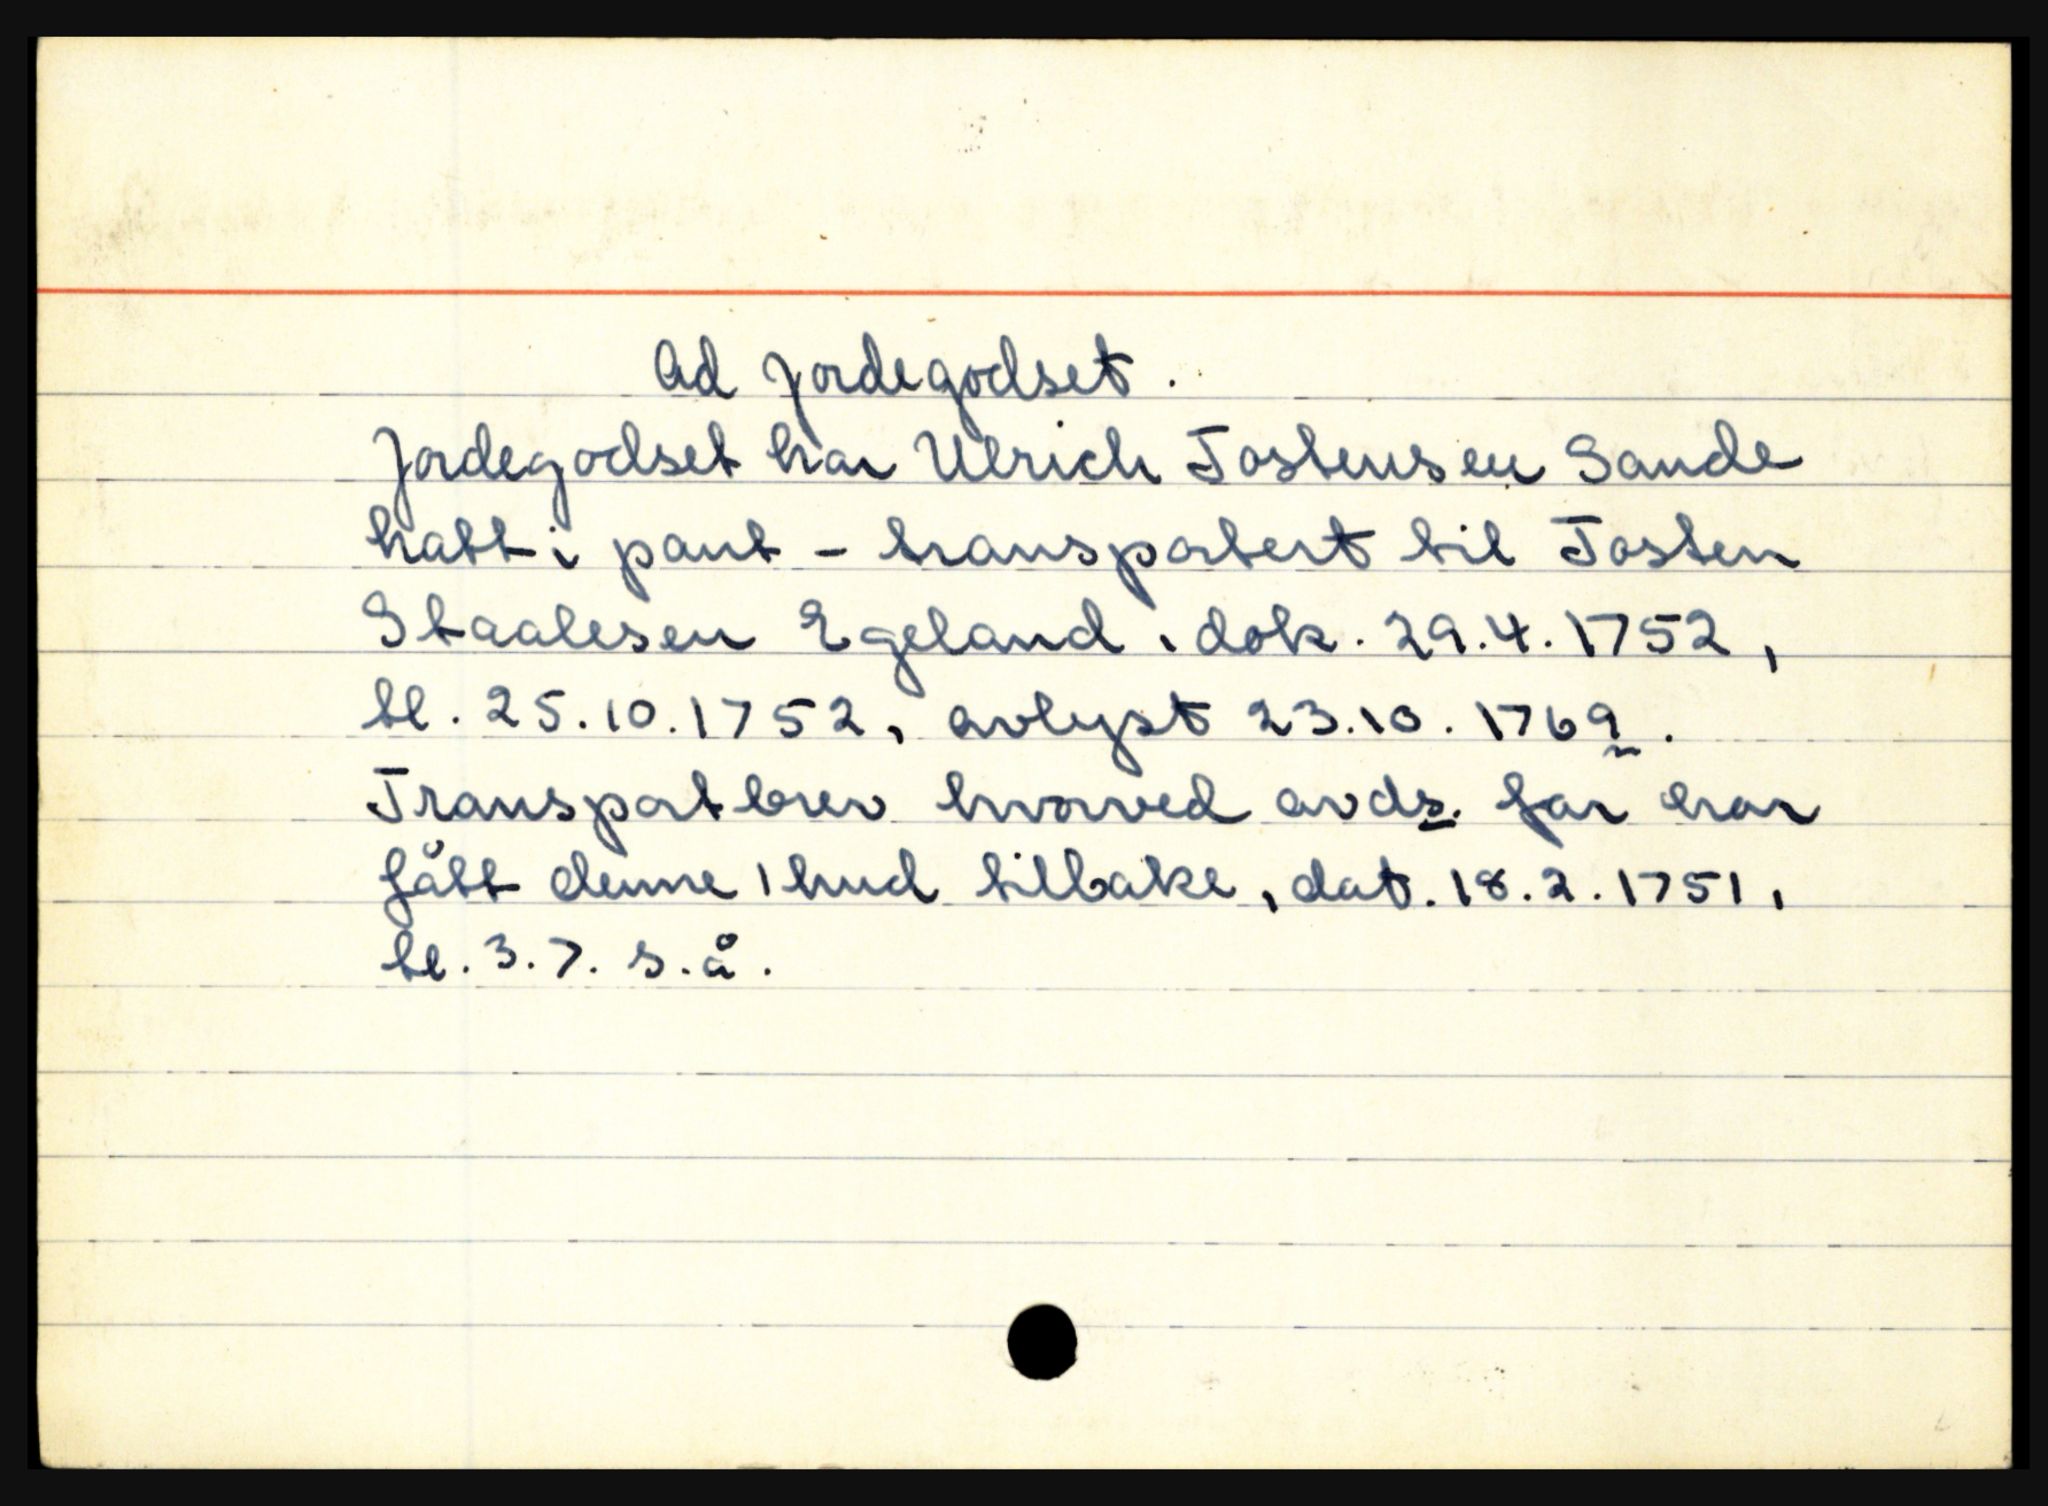 Ad jordegodset.
Jordegodset har Ulrich Tostensen Sande
hatt i pant - transportert til Tosten
Staalesen Egeland, dok. 29.4.1752,
tl. 25.10.1752, avlyst 23.10.1769.
Transportbrev hvorved avds. far har
fått denne 1 hud tilbake, dat. 18.2.1751,
tl. 3.7. s.å.